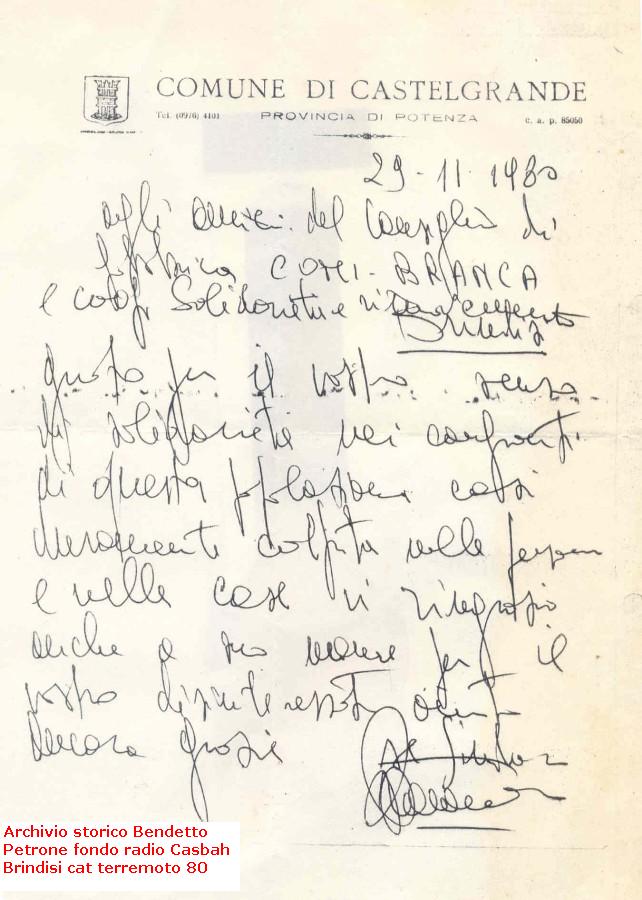 COMUNE DI CASTELGRANDE
Tel. (0976) 4101 PROVINCIA DI POTENZA c. a. p. 85050
29-11-1980
agli amici del Consiglio di
fabbrica COEMI-BRANCA
e coop Solidarietà e rinnovamento
Brindisi
grato per il vostro senso
di solidarietà nei confronti
di questa popolazione così
duramente colpita nelle persone
e nelle case vi ringrazio
anche a suo nome per il
vostro disinteressato aiuto
Ancora grazie
Il Sindaco
Archivio storico Bendetto
Petrone fondo radio Casbah
Brindisi cat terremoto 80